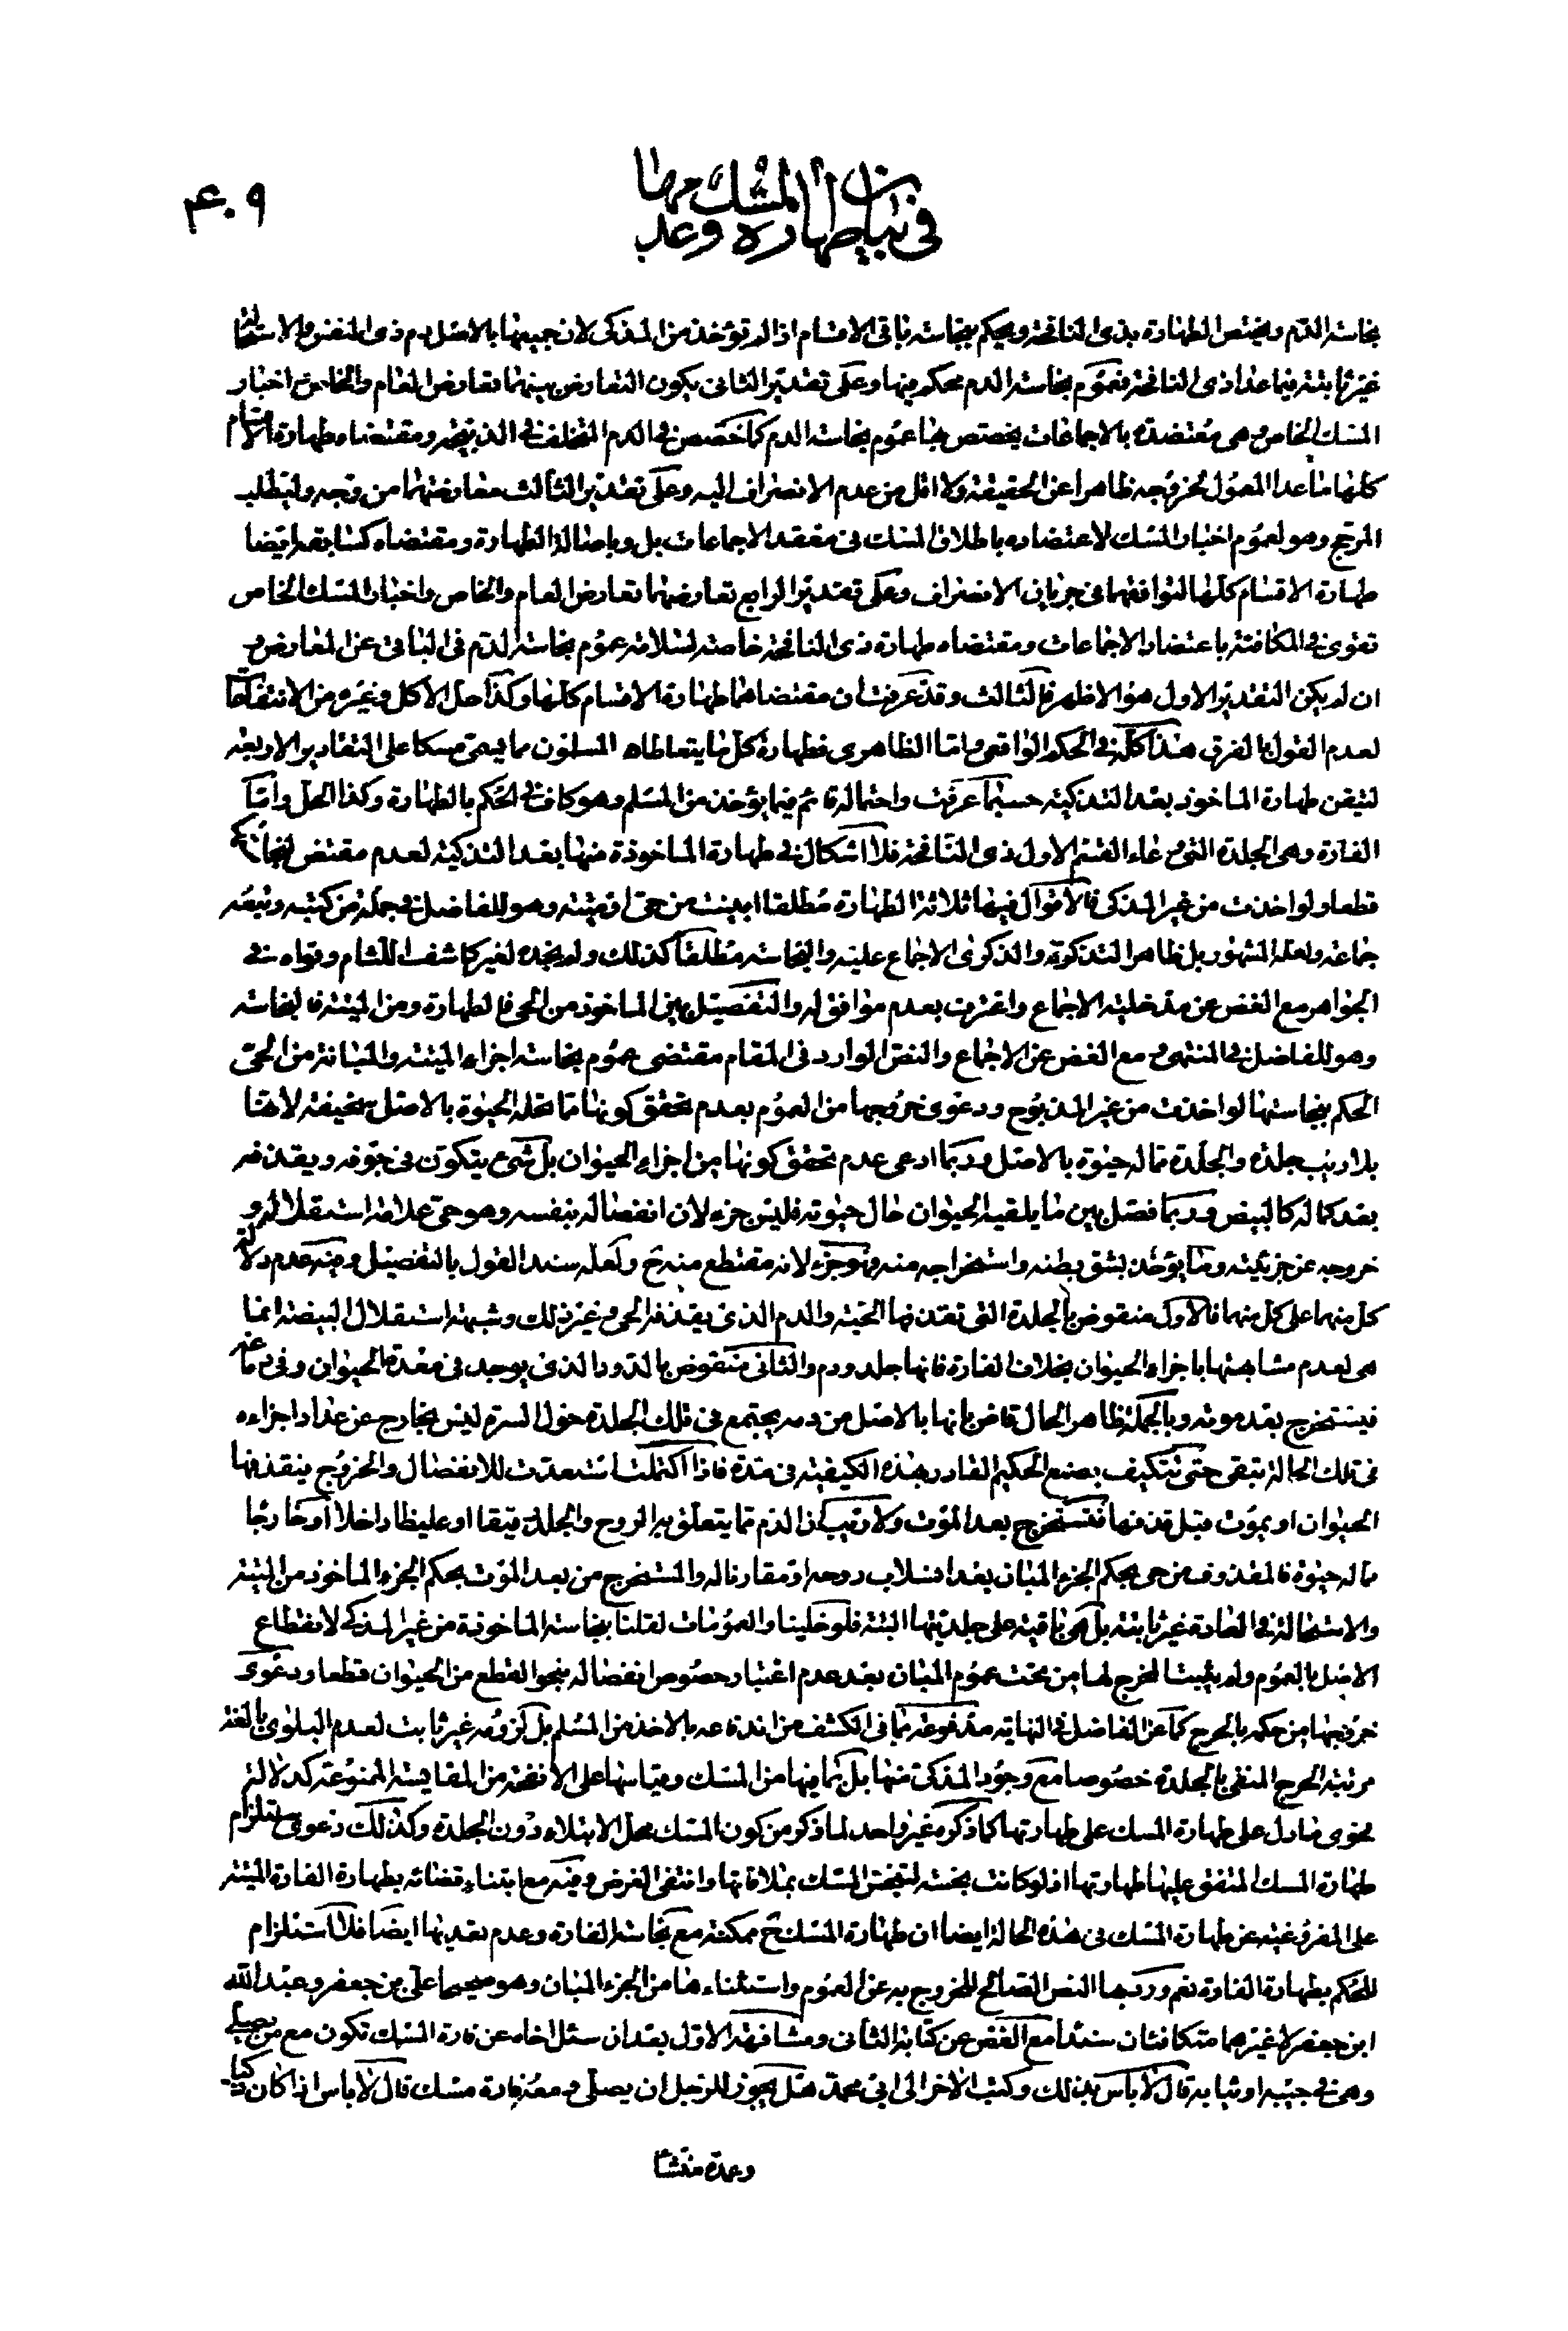 ۴۰۹
في بيان المسك مهما
طهارة وعد
نجاسة الدم ويختص الطهارة بذى النافجة ويحكم بنجاسة باقى الاقسام اذا لم تؤخذ من المذكى لان جميعها بالاصل دم ذى النفس والاستحالة
غير ثابتة فيما عدا ذى النافجة فعموم نجاسة الدم محكم فيها وعلى تقدير الثانى يكون التعارض بينهما تعارض العام والخاص اخبار
المسك الخاص هى معتضدة بالاجماعات يخصص بها عموم نجاسة الدم كما خصص فى الدم المتخلف فى الذبيحة ومقتضاه طهارة الاقسام
كلها ما عدا المعمول لخروجه ظاهرا عن الحقيقة ولا اقل من عدم الانصراف اليه وعلى تقدير الثالث معارضتهما من وجه وليطلب
المرجح وهو لعموم اخبار المسك لاعتضاده باطلاق المسك فى معقد الاجماعات بل وباصالة الطهارة ومقتضاه كسابقه ايضا
طهارة الاقسام كلها لتوافقهما فى جريان الانصراف وعلى تقدير الرابع تعارضهما تعارض العام والخاص واخبار المسك الخاص
تقوى فى المكافئة باعتضاد الاجماعات ومقتضاه طهارة ذى النافجة خاصة لسلامة عموم نجاسة الدم فى الباقى عن المعارض
ان لم يكن التقدير الاول هو الاظهر فالثالث وقد عرفت ان مقتضاهما طهارة الاقسام كلها وكذا حل الاكل وغيره من الانتفاعات
لعدم القول بالفرق هذا كله فى الحكم الواقعى واما الظاهرى فطهارة كل ما يتعاطاه المسلمون مما يسمى مسكا على التقادير الاربعة
لتيقن طهارة الماخوذ بعد التذكية حسبما عرفت واحتماله قائم فيما يؤخذ من المسلم وهو كاف فى الحكم بالطهارة وكذا الحل واما
الفارة وهى الجلدة التى وعاء القسم الاول ذى النافجة فلا اشكال فى طهارة الماخوذة منها بعد التذكية لعدم مقتض لنجاستها
قطعا ولو اخذت من غير المذكى فالاقوال فيها ثلاثة الطهارة مطلقا ابينت من حى او ميتة وهو للفاضل فى جملة من كتبه وتبعه
جماعة ولعله المشهور بل ظاهر التذكرة والذكرى الاجماع عليه والنجاسة مطلقا كذلك ولم نجده لغير كاشف اللثام وقواه فى
الجواهر مع الغض عن مدخلية الاجماع واعترف بعدم موافق له والتفصيل بين الماخوذ من الحى فالطهارة ومن الميتة فالنجاسة
وهو للفاضل فى المنتهى مع الغض عن الاجماع والنص الوارد فى المقام مقتضى عموم نجاسة اجزاء الميتة والمبانة من الحى
الحكم بنجاستها لو اخذت من غير المذبوح ودعوى خروجها من العموم بعدم تحقق كونها مما تحله الحيوة بالاصل سخيفة لانها
بلا ريب جلدة والجلدة مما له حيوة بالاصل وربما ادعى عدم تحقق كونها من اجزاء الحيوان بل شئ يتكون فى جوفه ويقذفه
بعد كماله كالبيض وربما فصل بين ما يلقيه الحيوان حال حيوته فليس جزء لان انفصاله بنفسه وهو حى علامة استقلاله و
خروجه عن جزئيته وما يؤخذ بشق بطنه واستخراجه منه فهو جزء لانه مقتطع منه ح ولعله سند القول بالتفصيل وفيه عدم دلالة
كل منهما على كل منهما فالاول منقوض بالجلدة التى تقذفها الحية والدم الذى يقذفه الحى وغير ذلك وشبهة استقلال البيضة انما
هى لعدم مشابهتها باجزاء الحيوان بخلاف الفارة فانها جلد ودم والثانى منقوض بالدود الذى يوجد فى معدة الحيوان وفى دماغه
فيستخرج بعد موته وبالجملة ظاهر الحال قاض بانها بالاصل من دمه يجتمع فى تلك الجلدة حول السرة ليس بخارج عن عداد اجزاءه
فى تلك الحالة تبقى حتى تتكيف بصنع الحكيم القادر بهذه الكيفية فى مدة فاذا اكتملت استعدت للانفصال والخروج فيقذفها
الحيوان او يموت قبل قذفها فتستخرج بعد الموت ولا ريب ان الدم مما يتعلق به الروح والجلد رقيقا او غليظا داخلا او خارجا
مما له حيوة فالمقذوف من حى بحكم الجزء المبان بعد انسلاب روحه او مقارنا له والمستخرج من بعد الموت بحكم الجزء الماخوذ من الميتة
والاستحالة فى العادة غير ثابتة بل هى باقية على جلديتها البتة فلو خلينا والعمومات لقلنا بنجاسة الماخوذة من غير المذكى لانقطاع
الاصل بالعموم ولم يثبت المخرج لها من تحت عموم المبان بعد عدم اعتبار خصوص انفصاله بنحو القطع من الحيوان قطعا ودعوى
خروجها من حكمه بالحرج كما عن الفاضل فى النهاية مدفوعة بما فى الكشف من اندفاعه بالاخذ من المسلم بل لزومه غير ثابت لعدم البلوى بالغة
مرتبة الحرج المنفى بالجلدة خصوصا مع وجود المذكاة منها بل بما فيها من المسك وقياسها على الانفحة من المقايسة الممنوعة كدلالة
فحوى ما دل على طهارة المسك على طهارتها كما ذكره غير واحد لما ذكر من كون المسك محل الابتلاء دون الجلدة وكذلك دعوى استلزام
طهارة المسك المتفق عليها طهارتها اذ لو كانت نجسة لتنجس المسك بملاقاتها وانتفى الغرض وفيه مع ابتناء قضائه بطهارة الفارة الميتة
على المفروغية عن طهارة المسك فى هذه الحالة ايضا ان طهارة المسك ح ممكنة مع نجاسة الفارة وعدم تعديها ايضا فلا استلزام
للحكم بطهارة الفارة نعم ورد بها النص الصالح للخروج به عن العموم واستثناءها من الجزء المبان وهو صحيحا على بن جعفر وعبد الله
ابن جعفر لا غيرهما متكافئان سندا مع الغض عن كتابة الثانى ومشافهة الاول بعد ان سئل اخاه عن فارة المسك تكون مع من يصلى
وهى فى جيبه او ثيابه قال لا باس بذلك وكتب الاخر الى ابى محمد هل يجوز للرجل ان يصلى ومعه فارة مسك قال لا باس اذا كان ذكيا